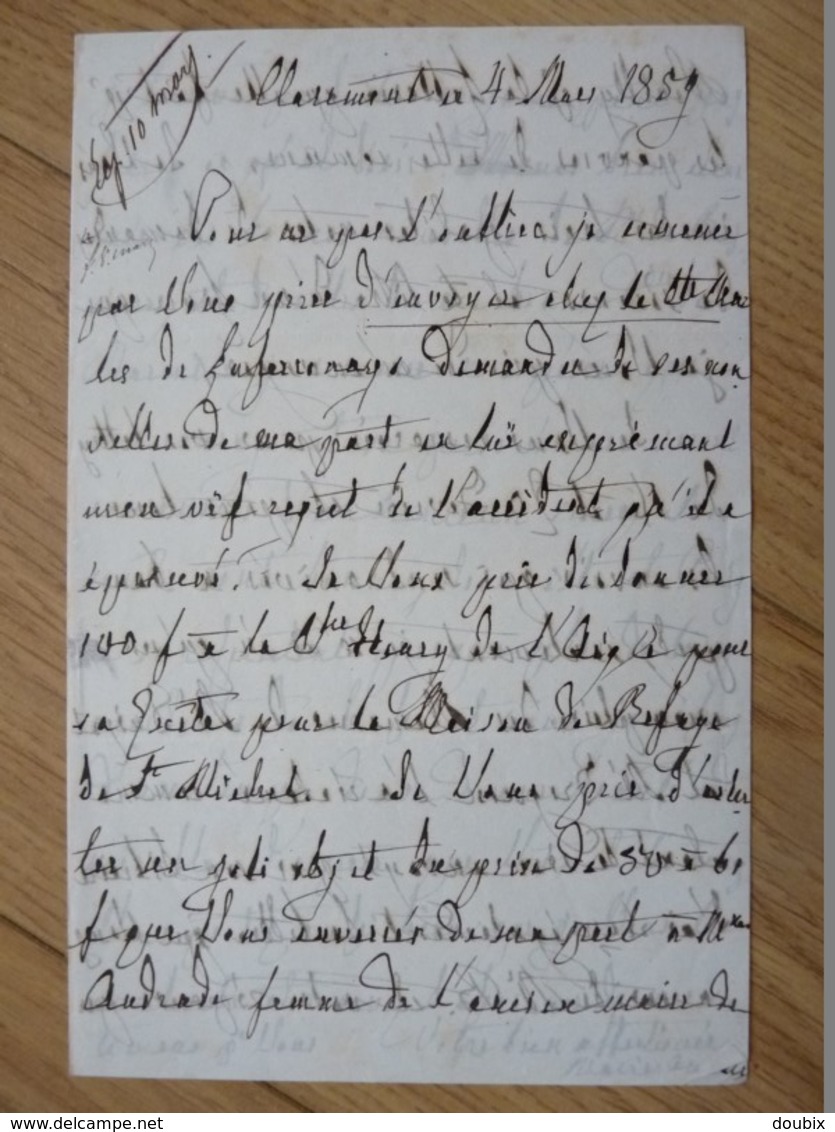 Rep. 10 mars
Claremont ce 4 Mars 1859
Pour ne pas l'oublier je commence
par Vous prier d'envoyer chez le Cte Char
les de Laferronays demander de ses nou
velles de ma part en lui exprimant
mon vif regret de l'accident qu'il a
éprouvé. Je Vous prie de donner
100 f à la Ctesse Henry de L'Aigle pour
sa Quête pour la Maison de Refuge
de St Michel. Je Vous prie d'ache
ter un joli objet du prix de 50 à 60
f que Vous enverrez de ma part à Mme
Andrade femme de l'ancien maire de
Votre bien affectionnée
delcampe.net
doubix